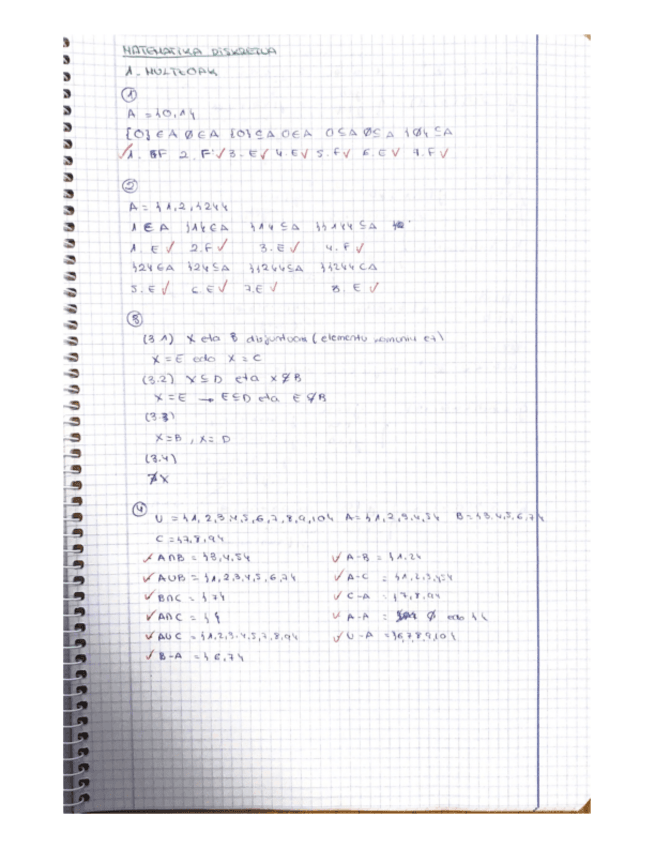 MATEMATIKA DISKRETUA
1. MULTZOAK
①
A = {0,1}
{0} ∈ A ∅ ∈ A {0} ⊆ A 0 ∈ A 0 ⊆ A ∅ ⊆ A {∅} ⊆ A
✓1. F 2. F ✓ 3. E ✓ 4. E ✓ 5. F ✓ 6. E ✓ 7. F ✓
②
A = {1,2,{2}}
1 ∈ A {1} ∈ A {1} ⊆ A {{1}} ⊆ A
1. E ✓ 2. F ✓ 3. E ✓ 4. F ✓
{2} ∈ A {2} ⊆ A {{2}} ⊆ A {{2}} ⊂ A
5. E ✓ 6. E ✓ 7. E ✓ 8. E ✓
③
(3.1) X eta B disjuntuak (elementu komunik ez)
X = E edo X = C
(3.2) X ⊆ D eta X ⊈ B
X = E → E ⊆ D eta E ⊈ B
(3.3)
X = B, X = D
(3.4)
∄ X
④
U = {1,2,3,4,5,6,7,8,9,10} A = {1,2,3,4,5} B = {3,4,5,6,7}
C = {7,8,9}
✓ A∩B = {3,4,5} ✓ A-B = {1,2}
✓ A∪B = {1,2,3,4,5,6,7} ✓ A-C = {1,2,3,4,5}
✓ B∩C = {7} ✓ C-A = {7,8,9}
✓ A∩C = { } ✓ A-A = ∅ edo { }
✓ A∪C = {1,2,3,4,5,7,8,9} ✓ U-A = {6,7,8,9,10}
✓ B-A = {6,7}